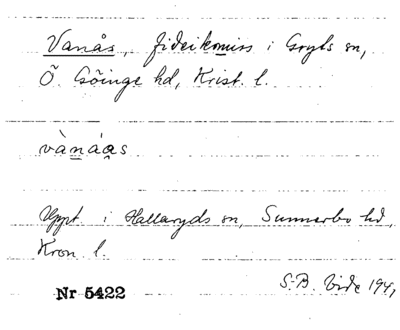 Vanås, fideikomiss i Gryts sn,
Ö. Göinge hd, Krist. l.
vànáas
Uppt i Hallaryds sn, Sunnerbo hd,
Kron. l.
Nr 5422
S.-B. Vide 1947